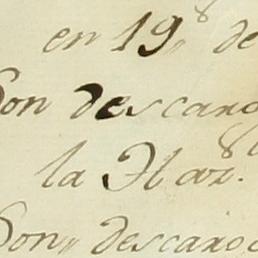 en 19,, 8 de
Son descarg
la Haz.
Son,, descargo